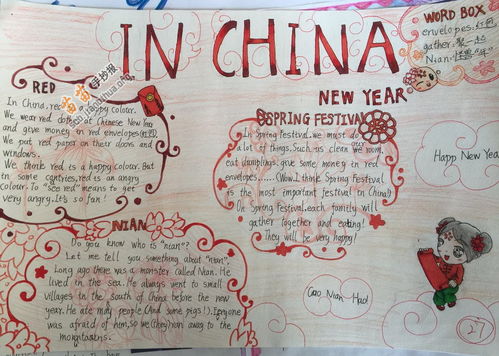 IN CHINA
WORD BOX
envelopes:红包
gather:聚一起
Nian:
RED
In China, red is a happy colour.
We wear red at Chinese New Year
and give money in red envelopes(红包).
We put red paper on their doors and
windows.
We think red is a happy colour. But
in some centries, red is an angry
colour. To "see red" means to get
very angry. It's so fun!
NEW YEAR
SPRING FESTIVAL
In Spring Festival, we must do
a lot of things. Such as clean our room,
eat dumplings, give some money in red
envelopes.....(Wow. I think Spring Festival
is the most important festival in China!)
In Spring Festival, each family will
gather together and eating!
They will be very happy!
Happy New Year
NIAN
Do you know who is "nian"?
Let me tell you something about "nian".
Long ago there was a monster called Nian. He
lived in the sea. He always went to small
villages in the south of China before the new
year. He ate may people (And some pigs!). Everyone
was afraid of him, so we(they) ran away to the
mountains.
Guo Nian Hao!
27